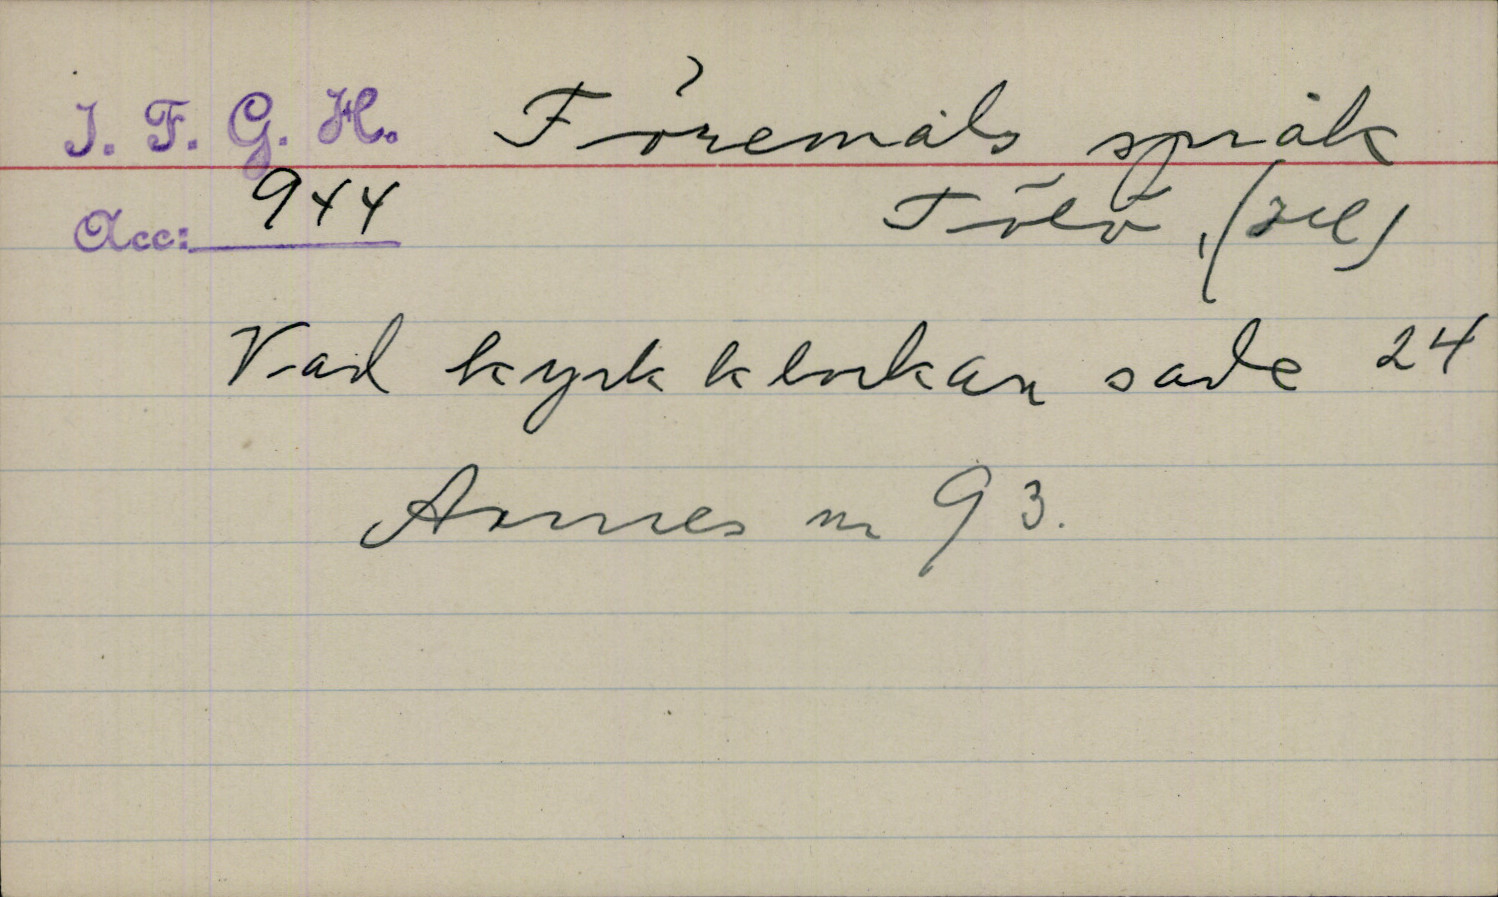 I. F. G. H. Föremåls språk
Acc: 944 Tölö, (Hll)
Vad kyrkklockan sade 24
Annes nr 93.